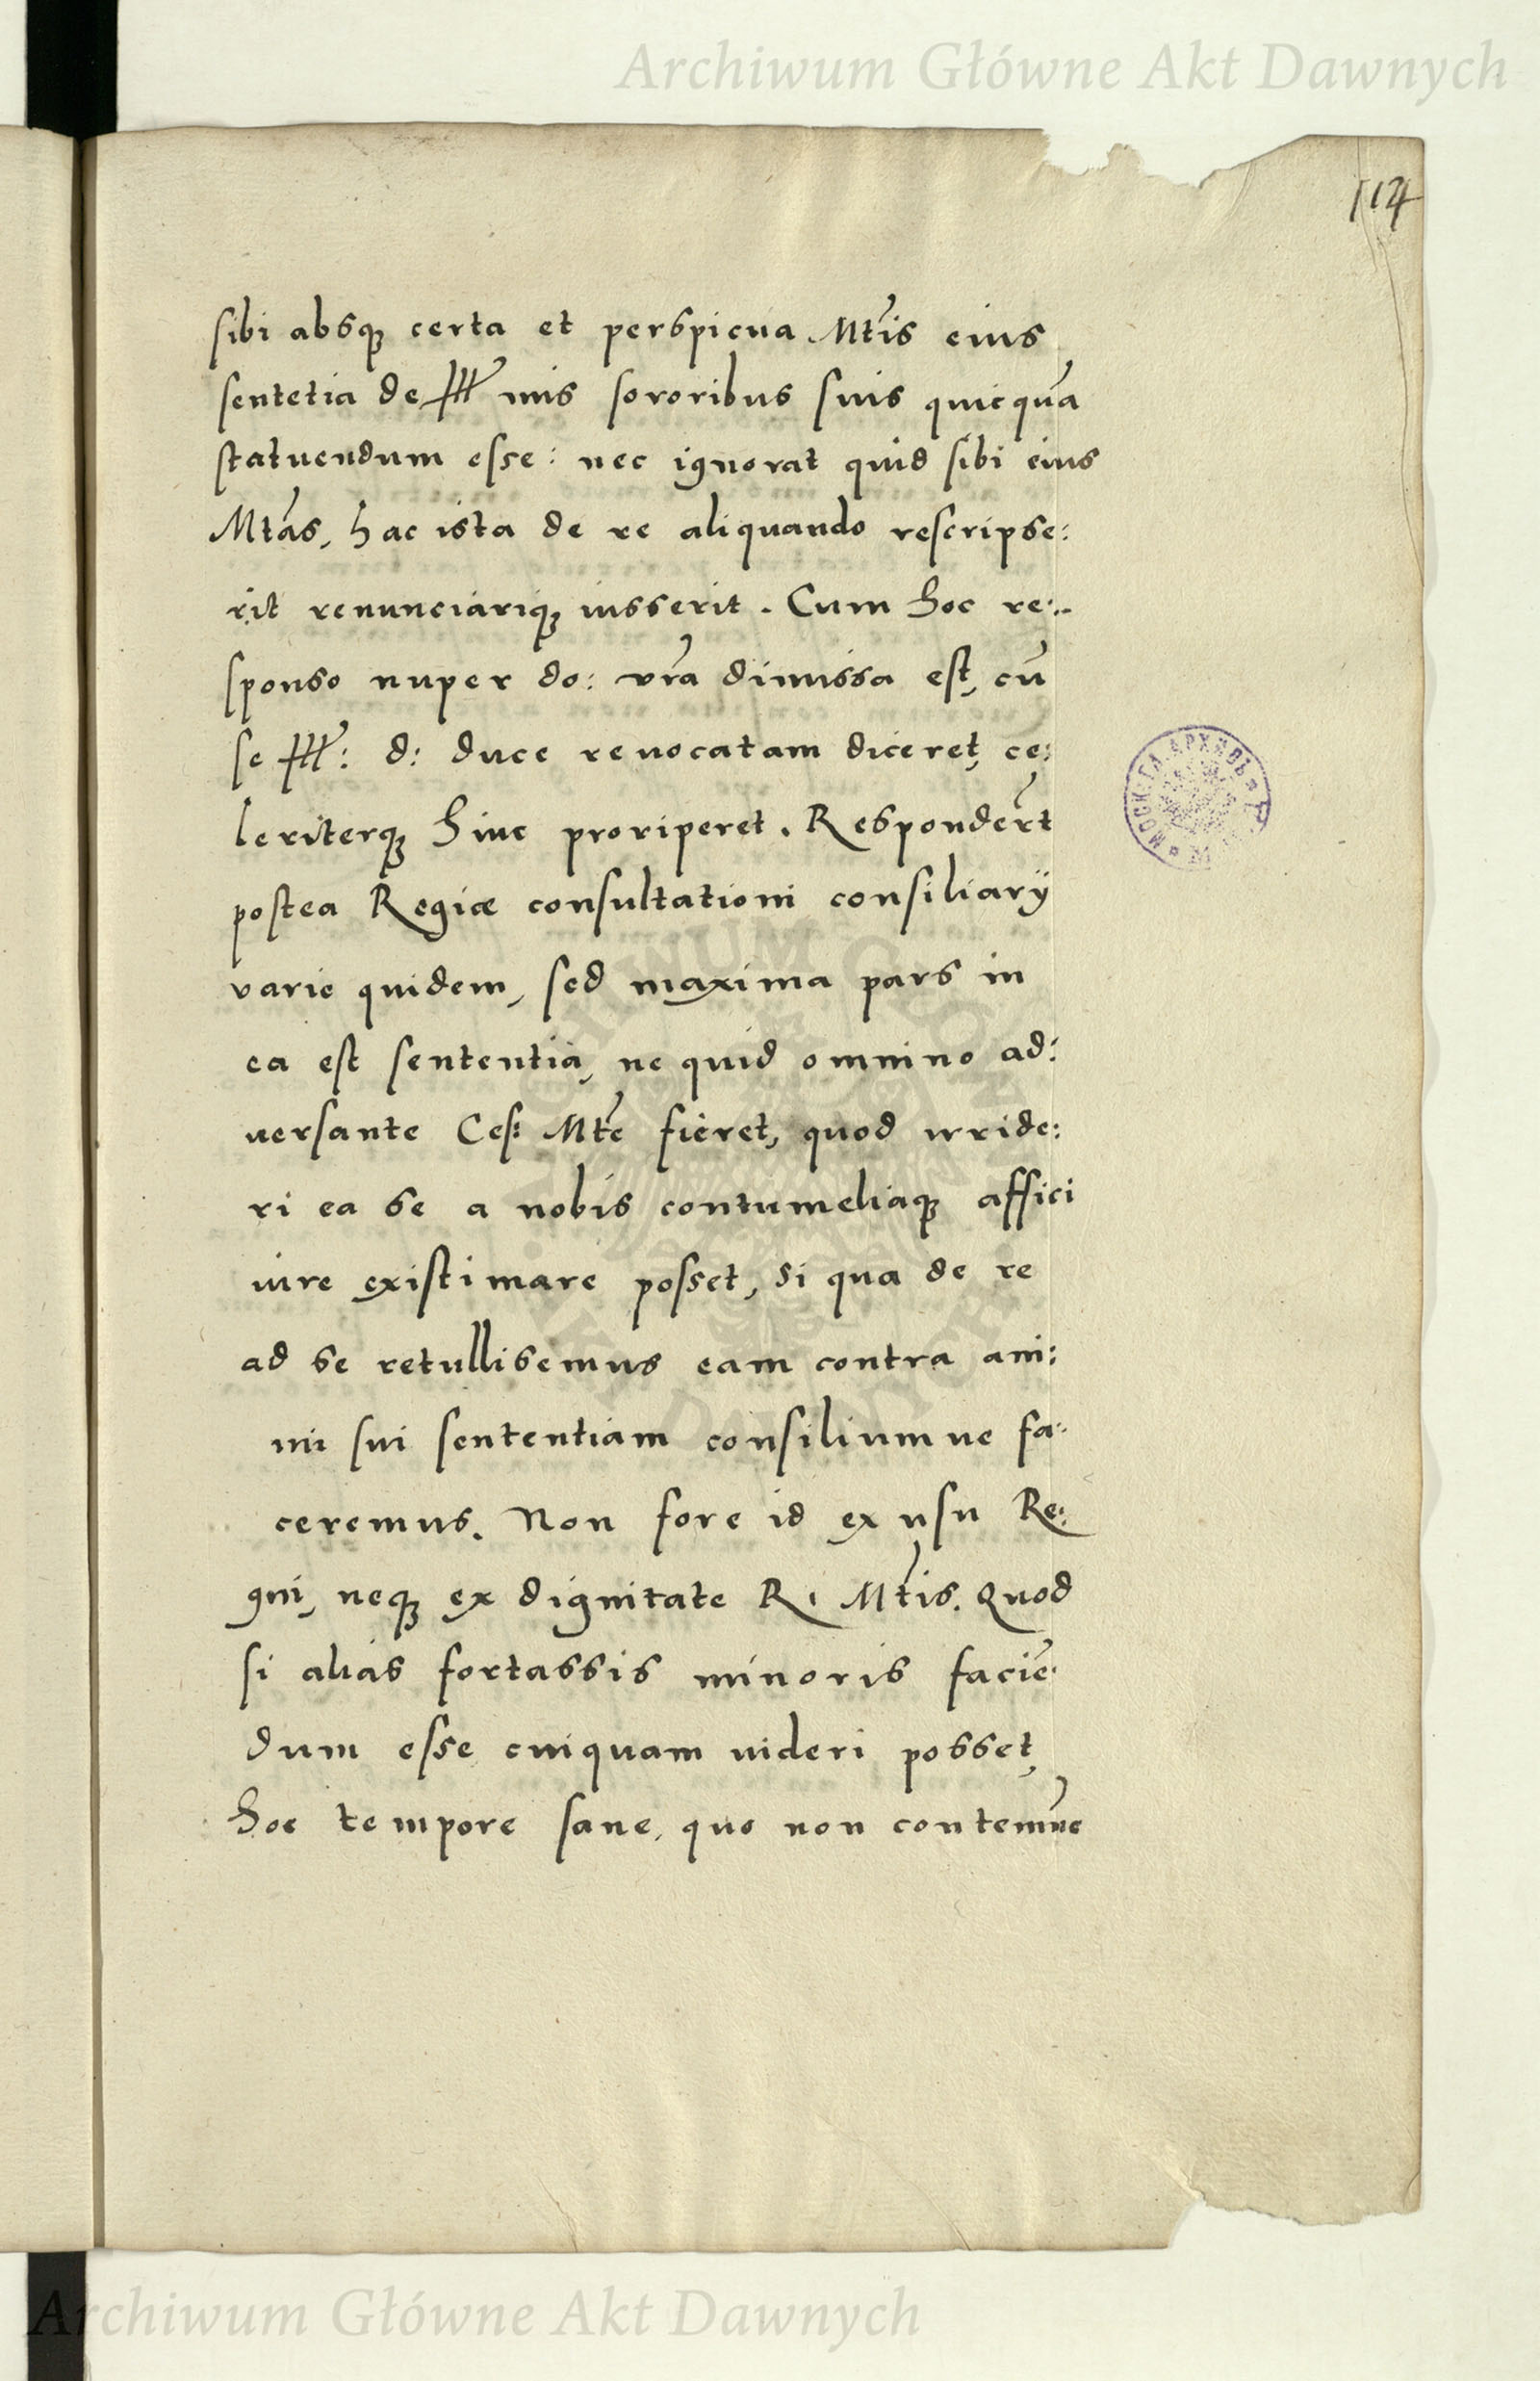 Archiwum Główne Akt Dawnych
114
sibi absq3 certa et perspicua Mtis eius
sentetia de Ill mis sororibus suis quicquā
statuendum esse: nec ignorat quid sibi eius
Mtas, hac ista de re aliquando rescripse:
rit renunciariq3 iusserit. Cum hoc re:
sponso nuper do: vra dimissa est, cū
se Ill: d: duce reuocatam diceret, ce:
leriterq3 hinc proriperet. Responderūt
postea Regiæ consultationi consiliarij
varie quidem, sed maxima pars in
ea est sententia, ne quid omnino ad:
uersante Ces: Mte fieret, quod irride:
ri ea se a nobis contumeliaq3 affici
iure existimare posset, si qua de re
ad se retullisemus eam contra ani:
mi sui sententiam consiliumue fa:
ceremus. Non fore id ex usu Re:
gni, neq3 ex dignitate R. Mtis. Quod
si alias fortassis minoris faciē:
dum esse cuiquam uideri posset,
hoc tempore sane, quo non contemne
Archiwum Główne Akt Dawnych